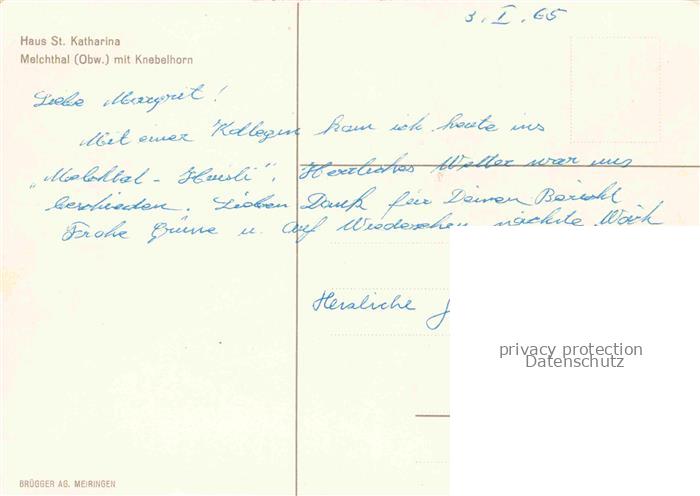 3. I. 65
Haus St. Katharina
Melchthal (Obw.) mit Knebelhorn
Liebe Margrit!
Mit einer Kollegin kam ich heute ins
„Melchtal - Huisli". Herrliches Wetter war uns
beschieden. Lieben Dank für Deinen Bericht
Frohe Grüsse u. auf Wiedersehen nächste Woch
Herzliche
privacy protection
Datenschutz
BRÜGGER AG. MEIRINGEN